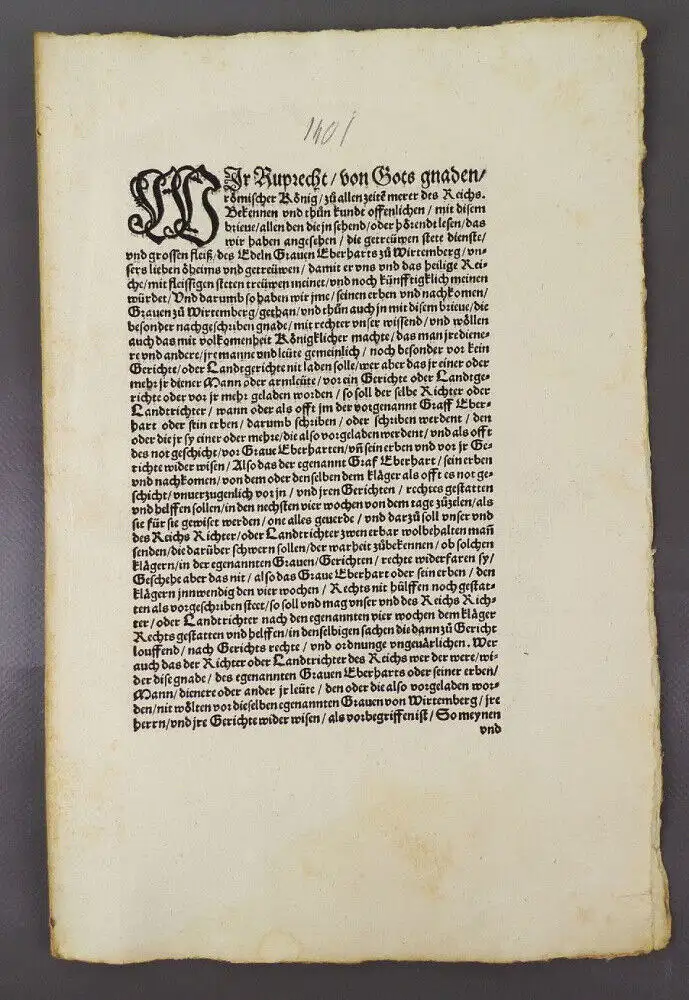 1401
WIr Ruprecht / von Gots gnaden /
römischer König / zů allen zeitẽ merer des Reichs.
Bekennen vnd thůn kunde offenlichen / mit disem
brieue / allen den die jn sehend / oder hörendt lesen / das
wir haben angesehen / die getreüwen stete dienste /
vnd grossen fleiß / des Edeln Grauen Eberharts zů Wirtemberg / vn-
sers lieben öheims vnd getreüwen / damit er vns vnd das heilige Rei-
che / mit fleissigen steten treüwen meinet / vnd noch künfftigklich meinen
würdet / Vnd darumb so haben wir jme / seinen erben vnd nachkomen /
Grauen zů Wirtemberg / gethan / vnd thůn auch jn mit disem brieue / die
besonder nachgeschriben gnade / mit rechter vnser wissend / vnd wöllen
auch das mit volkomenheit Königklicher machte / das man jre diene-
re vnd andere / jre manne vnd leüte gemeinlich / noch besonder vor kein
Gerichte / oder Landtgerichte nit laden solle / wer aber das jr einer oder
mehr jr diener Mann oder armleüte / vor ein Gerichte oder Landtge-
richte oder vor jr mehr geladen worden / so soll der selbe Richter oder
Landtrichter / wann oder als offt jm der vorgenannt Graff Eber-
hart oder sein erben / darumb schriben / oder schriben werdent / den
oder die jr sy einer oder mehre / die also vorgeladen werdent / vnd als offt
des not geschicht / vor Graue Eberharten / vñ sein erben vnd vor jr Ge-
richte wider wisen / Also das der egenannt Graf Eberhart / sein erben
vnd nachkomen / von dem oder den selben dem kläger als offt es not ge-
schicht / vnuerzugenlich vor jn / vnd jren Gerichten / rechtes gestatten
vnd helffen sollen / in den nechsten vier wochen von dem tage zůzelen / als
sie für sie gewiset werden / one alles geuerde / vnd darzů soll vnser vnd
des Reichs Richter / oder Landtrichter zwen erbar wolbehalten mañ
senden / die darüber schwern sollen / der warheit zůbekennen / ob solchen
klägern / in der egenannten Grauen / Gerichten / rechte widerfaren sy /
Geschehe aber das nit / also das Graue Eberhart oder sein erben / den
klägern jnnwendig den vier wochen / Rechts nit hülffen noch gestat-
ten als vorgeschriben steet / so soll vnd mag vnser vnd des Reichs Rich-
ter / oder Landtrichter nach den egenannten vier wochen dem kläger
Rechts gestatten vnd helffen / in denselbigen sachen die dann zů Gericht
louffend / nach Gerichts rechte / vnd ordnunge vngeuärlichen. Wer
auch das der Richter oder Landtrichter des Reichs wer der were / wi-
der dise gnade / des egenannten Grauen Eberharts oder seiner erben /
Mann / dienere oder ander jr leüte / den oder die also vorgeladen wor-
den / nit wölten vor dieselben egenannten Grauen von Wirtemberg / jre
herrn / vnd jre Gerichte wider wisen / als vorbegriffen ist / So meynen
vnd